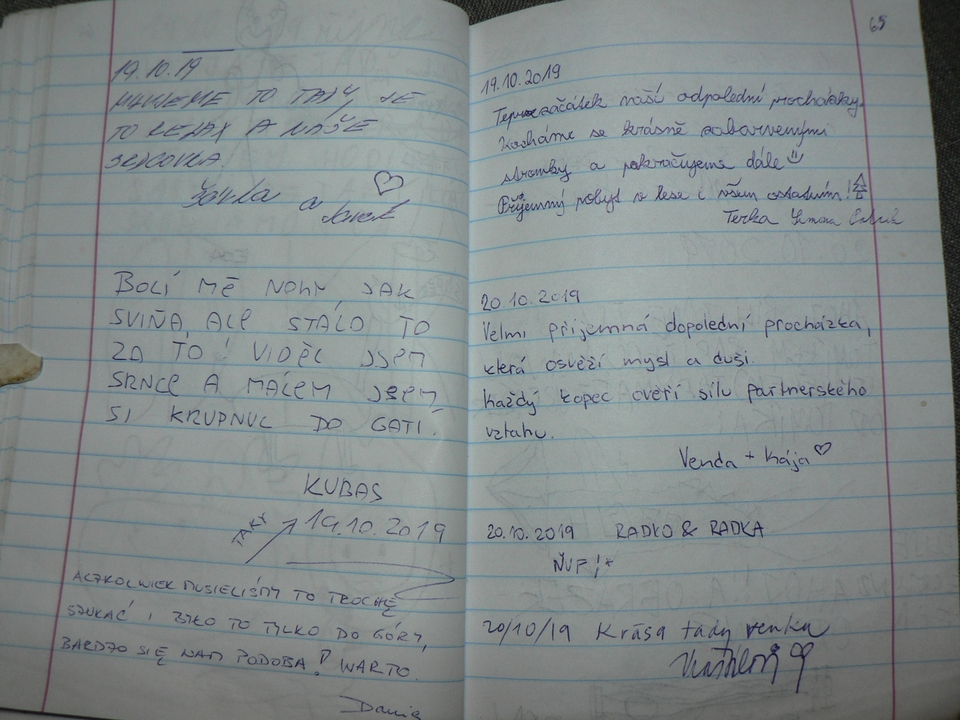 19.10.19
MILUJEME TO TADY, JE
TO RELAX A NAŠE
SRDCOVKA
a
BOLÍ MĚ NOHY JAK
SVIŇA, ALE STÁLO TO
ZA TO! VIDĚL JSEM
SRNCE A MÁLEM JSEM
SI KRUPNUL DO GATÍ.
KUBAS
TAKY
19.10.2019
ACZKOLWIEK MUSIELIŚMY TO TROCHĘ
SZUKAĆ I BYŁO TO TYLKO DO GÓRY,
BARDZO SIĘ NAM PODOBA! WARTO.
65
19.10.2019
Teprve začátek naší odpolední procházky.
Kocháme se krásně zabarvenými
stromky a pokračujeme dále
Příjemný pobyt v lese i všem ostatním!
Terka Simona
20.10.2019
Velmi příjemná dopolední procházka,
která osvěží mysl a duši.
Každý kopec ověří sílu partnerského
vztahu.
Venda + Kája
20.10.2019 RADKO & RADKA
ŇUF
20/10/19 Krása tady venku